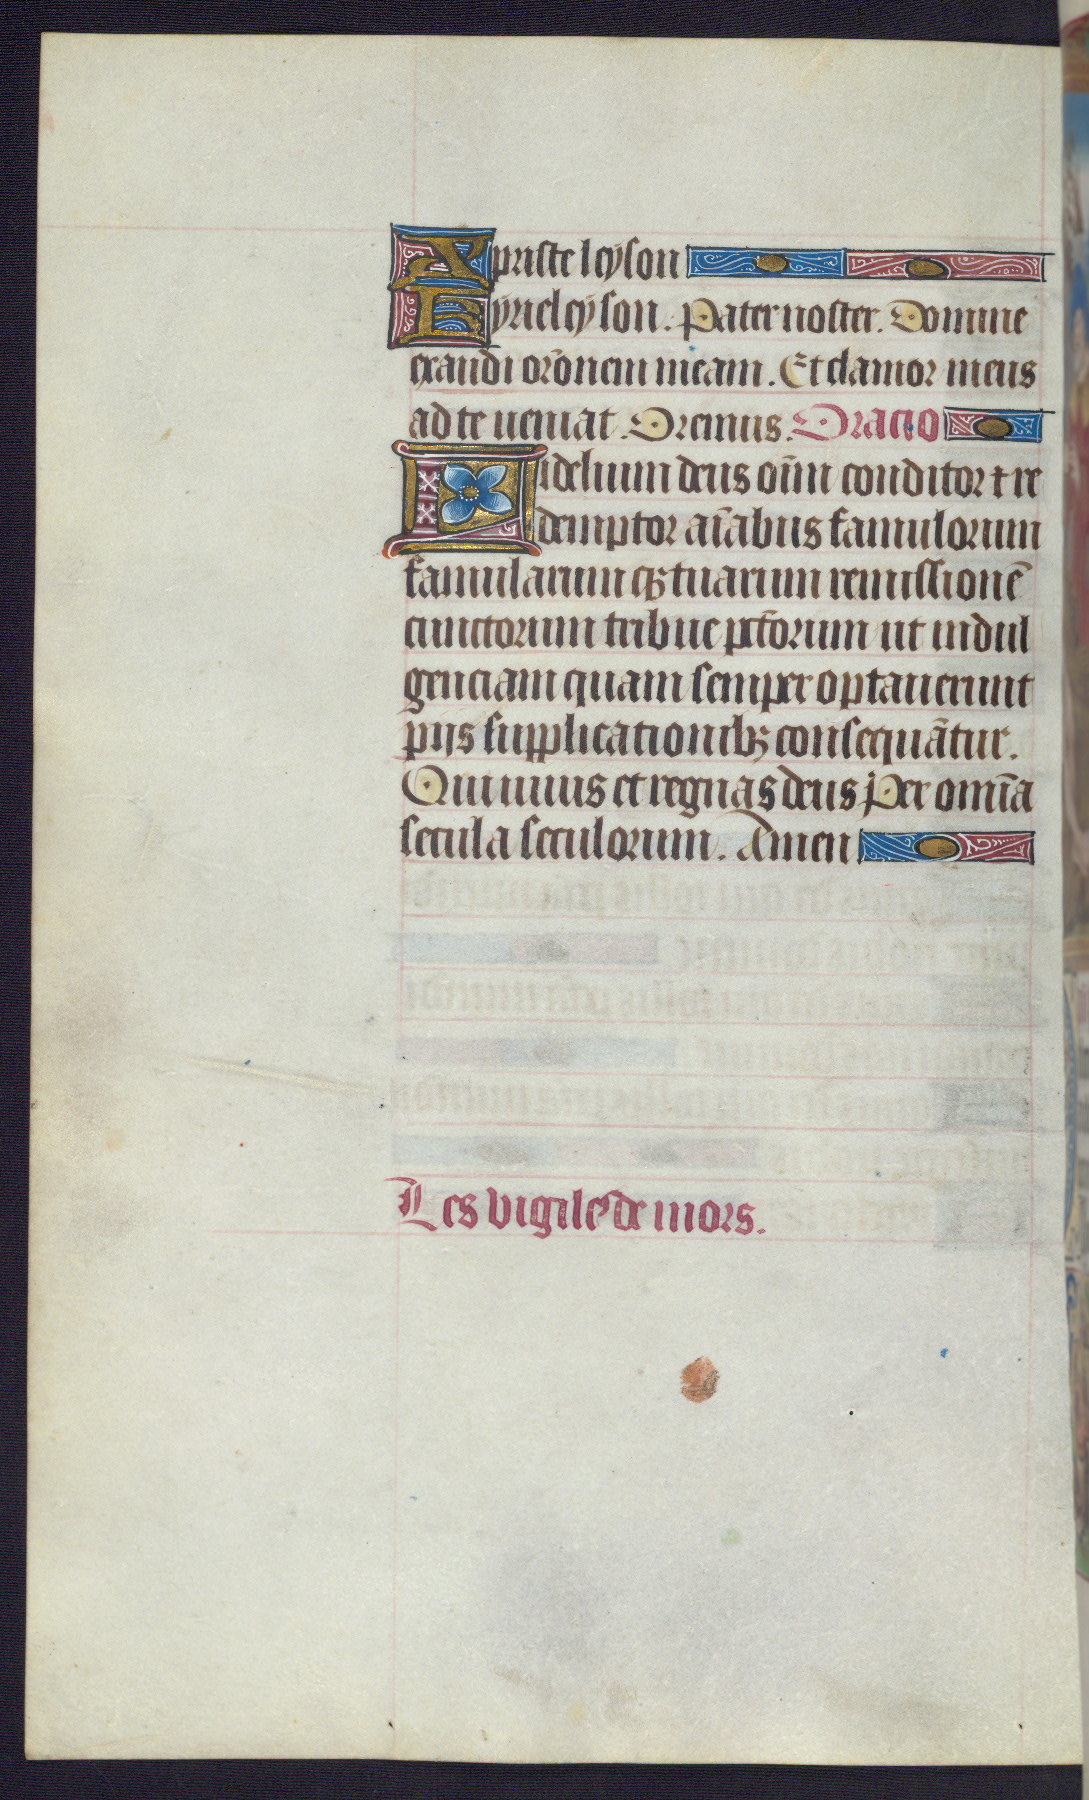 Xpriste leyson
Kyrieleyson. Pater noster. Domine
exaudi orōnem meam. Et clamor meus
ad te ueniat. Oremus. Oracio
Fidelium deus oīm conditor ⁊ re
demptor aīabus famulorum
famularum qꝫ tuarum remissionē
cunctorum tribue pctōrum ut indul
genciam quam semper optauerunt
pijs supplicationibꝫ consequātur.
Qui uiuis et regnas deus Per omīa
secula seculorum. Amen
Les vigiles de mors.